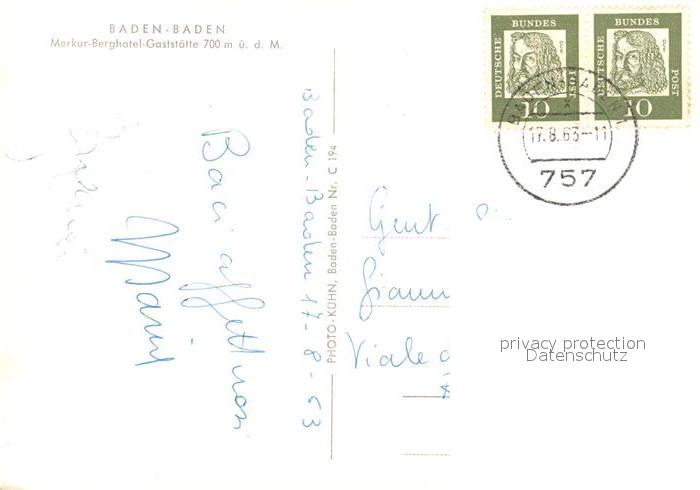 BADEN-BADEN
Merkur-Berghotel-Gaststätte 700 m ü. d. M.
Baden-Baden 17-8-63
Baci affettuosi
PHOTO-KUHN, Baden-Baden Nr. C 194
DEUTSCHE BUNDES POST
10
DEUTSCHE BUNDES POST
10
17.8.63-11
757
Gent.
Viale
privacy protection
Datenschutz